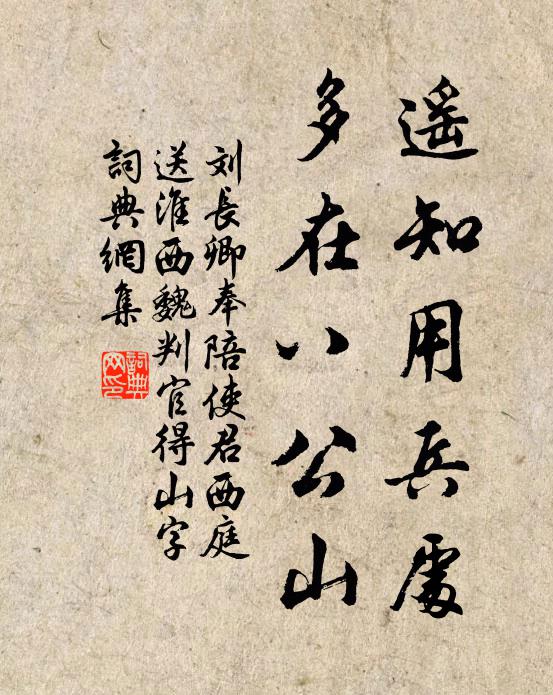 遥知用兵處
多在八公山
刘長卿奉陪使君西庭
送淮西魏判官得山字
詞典網集
詞典
网印